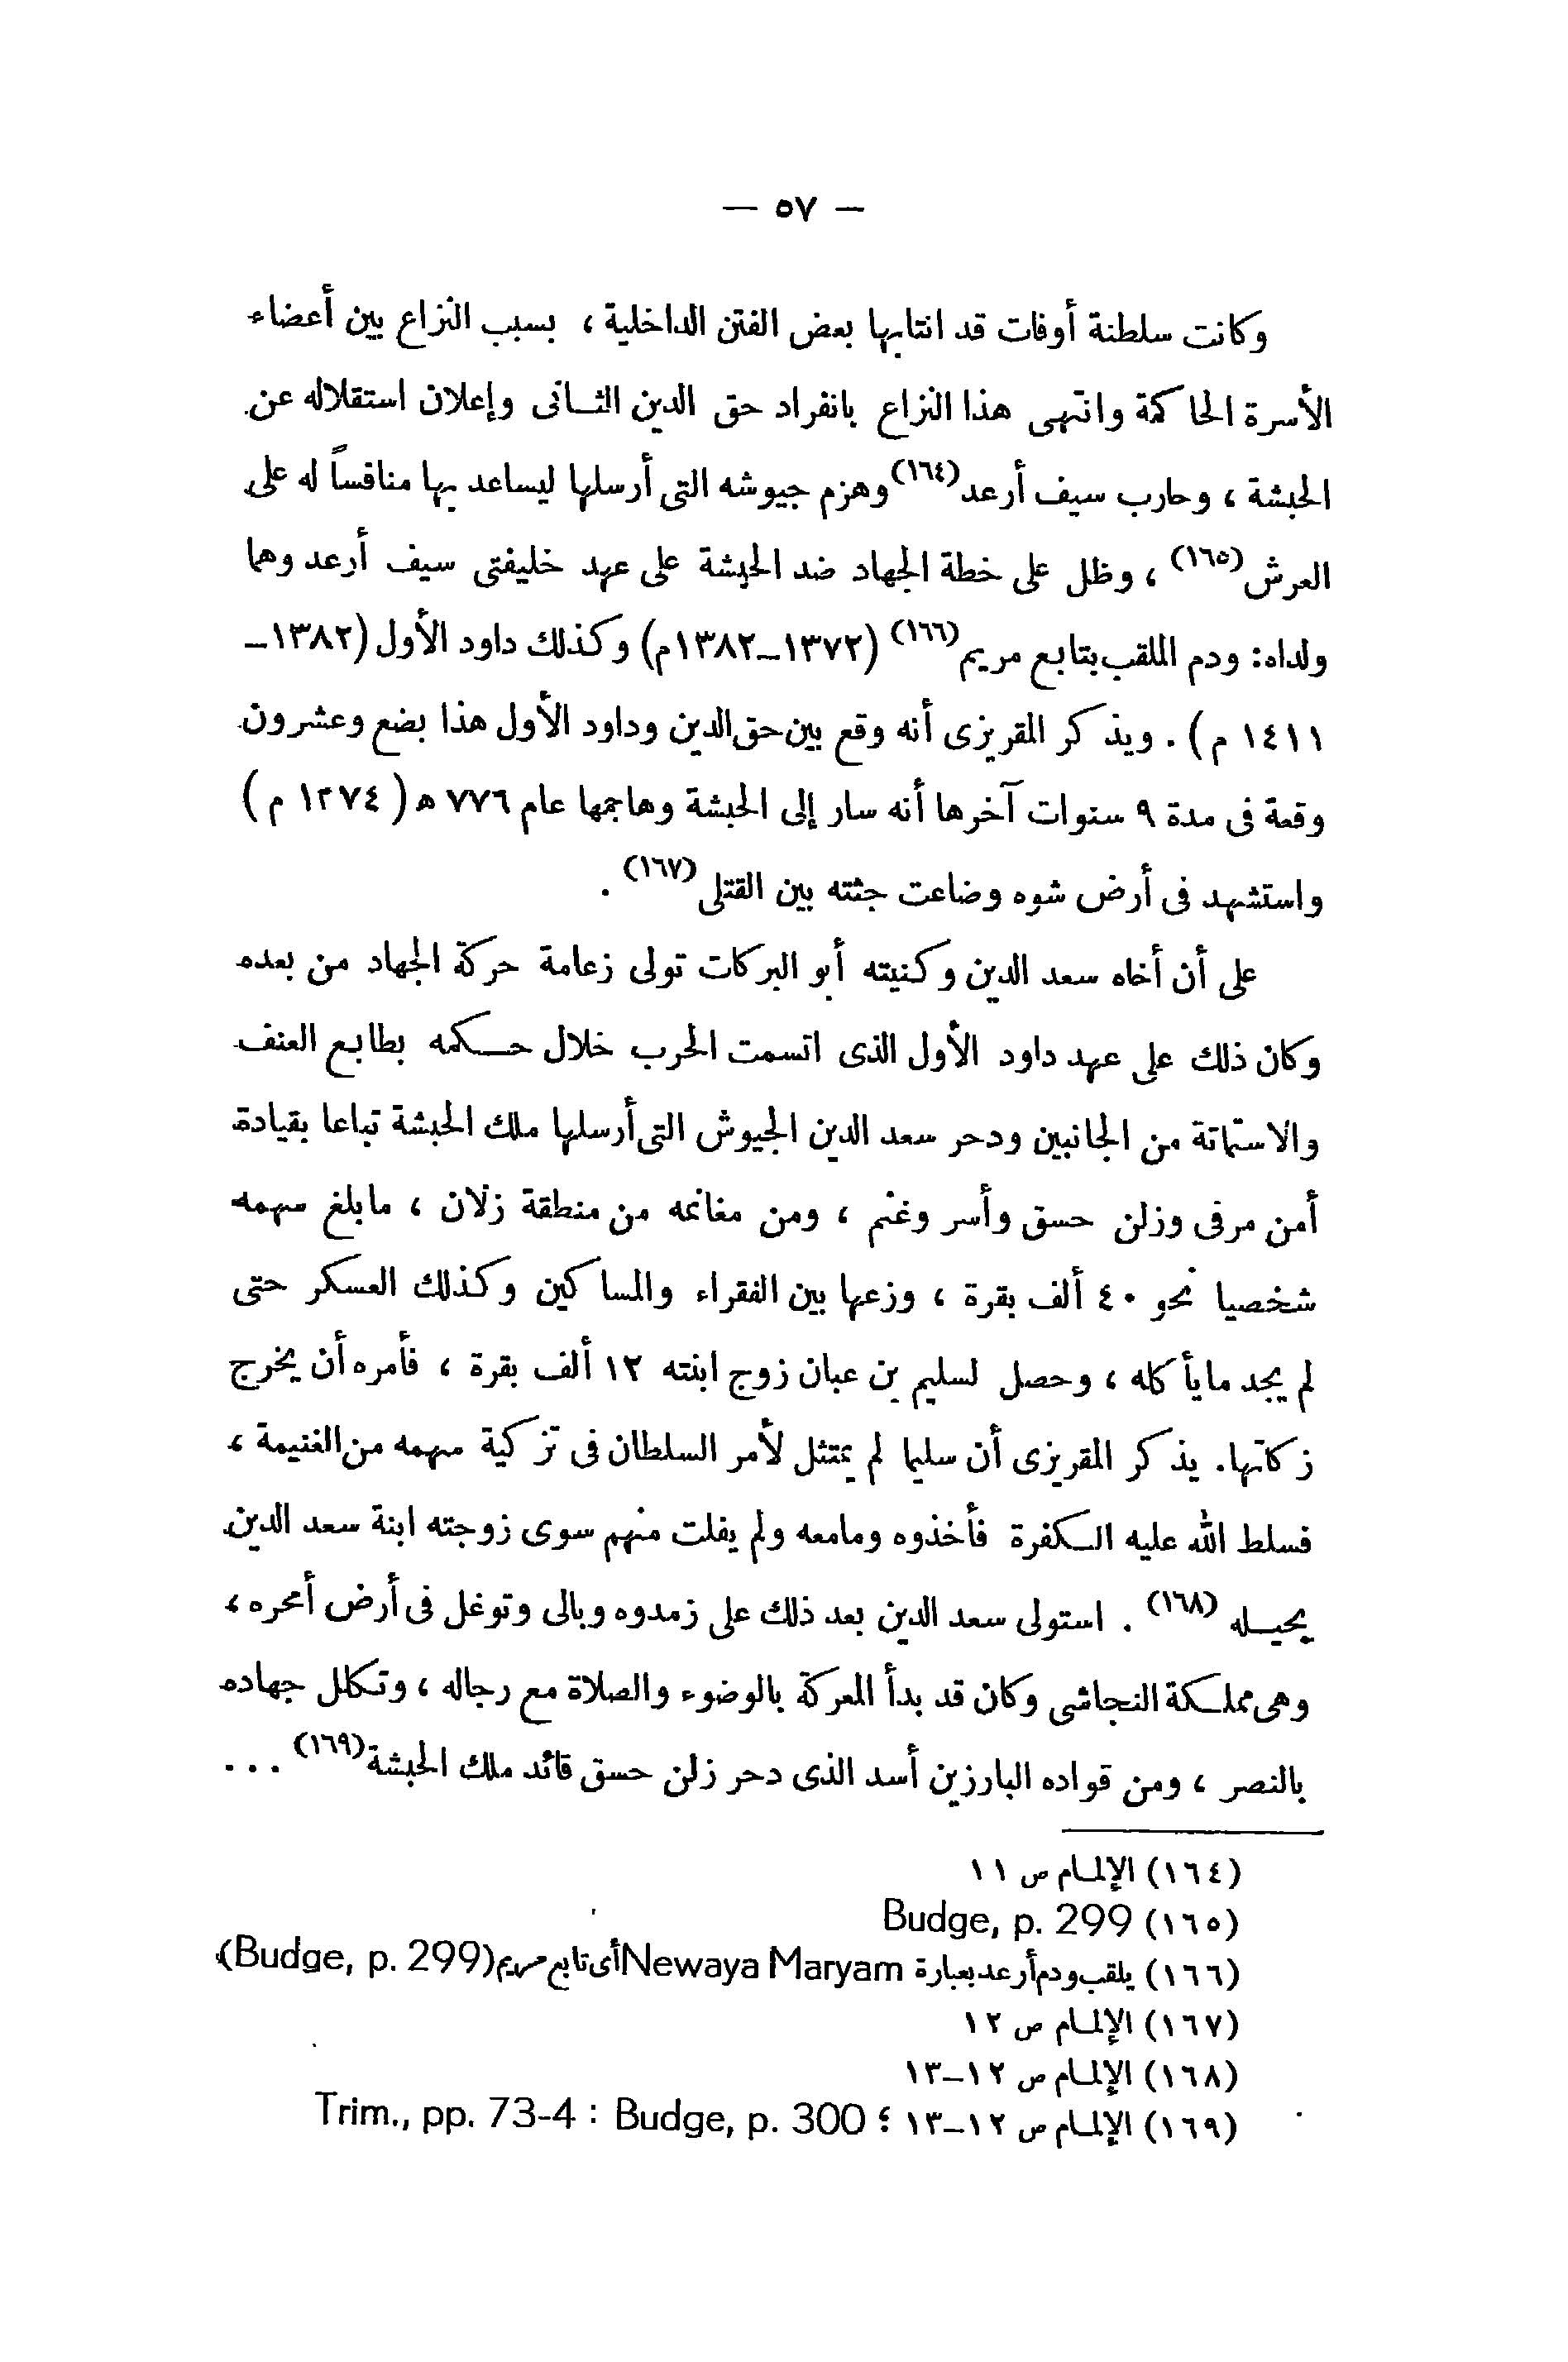 — ٥٧ —
وكانت سلطنة أوفات قد انتابها بعض الفتن الداخلية ، بسبب النزاع بين أعضاء
الأسرة الحاكمة وانتهى هذا النزاع بانفراد حق الدين الثانى وإعلان استقلاله عن
الحبشة ، وحارب سيف أرعد(١٦٤) وهزم جيوشه التى أرسلها ليساعد بها منافساً له على
العرش(١٦٥) ، وظل على خطة الجهاد ضد الحبشة على عهد خليفتى سيف أرعد وهما
ولداه: ودم الملقب بتابع مريم(١٦٦) (١٣٧٢–١٣٨٢م) وكذلك داود الأول (١٣٨٢–
١٤١١ م) . ويذكر المقريزى أنه وقع بين حق الدين وداود الأول هذا بضع وعشرون
وقعة فى مدة ٩ سنوات آخرها أنه سار إلى الحبشة وهاجمها عام ٧٧٦ ه ( ١٣٧٤ م )
واستشهد فى أرض شوه وضاعت جثته بين القتلى(١٦٧) .
على أن أخاه سعد الدين وكنيته أبو البركات تولى زعامة حركة الجهاد من بعده
وكان ذلك على عهد داود الأول الذى اتسمت الحرب خلال حكمه بطابع العنف
والاستماتة من الجانبين ودحر سعد الدين الجيوش التى أرسلها ملك الحبشة تباعا بقيادة
أمن مرفى وزلن حسق وأسر وغنم ، ومن مغانمه من منطقة زلان ، مابلغ سهمه
شخصيا نحو ٤٠ ألف بقرة ، وزعها بين الفقراء والمساكين وكذلك العسكر حتى
لم يجد مايأكله ، وحصل لسليم بن عبان زوج ابنته ١٢ ألف بقرة ، فأمره أن يخرج
زكاتها. يذكر المقريزى أن سليما لم يمتثل لأمر السلطان فى تزكية سهمه من الغنيمة ،
فسلط الله عليه الكفرة فأخذوه ومامعه ولم يفلت منهم سوى زوجته ابنة سعد الدين
بحيله (١٦٨) . استولى سعد الدين بعد ذلك على زمدوه وبالى وتوغل فى أرض أمحره ،
وهى مملكة النجاشى وكان قد بدأ المعركة بالوضوء والصلاة مع رجاله ، وتكلل جهاده
بالنصر ، ومن قواده البارزين أسد الذى دحر زلن حسق قائد ملك الحبشة(١٦٩) ...
(١٦٤) الإلمام ص ١١
(١٦٥) Budge, p. 299
(١٦٦) يلقب ودم أرعد بعبارة Newaya Maryam أى تابع مريم (Budge, p. 299)
(١٦٧) الإلمام ص ١٢
(١٦٨) الإلمام ص ١٢–١٣
(١٦٩) الإلمام ص ١٢–١٣ ؛ Trim., pp. 73-4 : Budge, p. 300